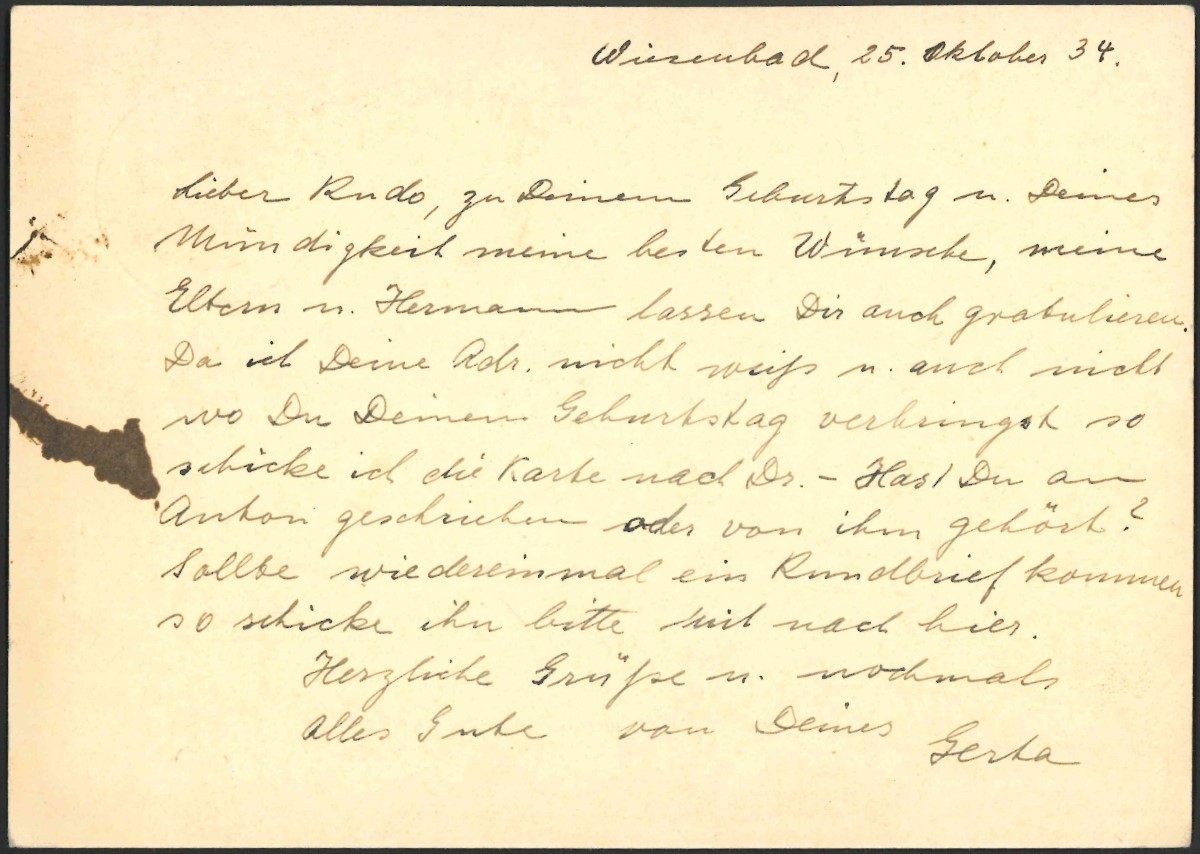 Wiesenbad, 25. Oktober 34.
Lieber Rudo, zu Deinem Geburtstag u. Deiner
Mündigkeit meine besten Wünsche, meine
Eltern u. Hermann lassen Dir auch gratulieren.
Da ich Deine Adr. nicht weiß u. auch nicht
wo Du Deinen Geburtstag verbringst so
schicke ich die Karte nach Dr. – Hast Du an
Anton geschrieben oder von ihm gehört?
Sollte wiedereinmal ein Rundbrief kommen
so schicke ihn bitte mit nach hier.
Herzliche Grüße u. nochmals
alles Gute von Deiner
Gerta